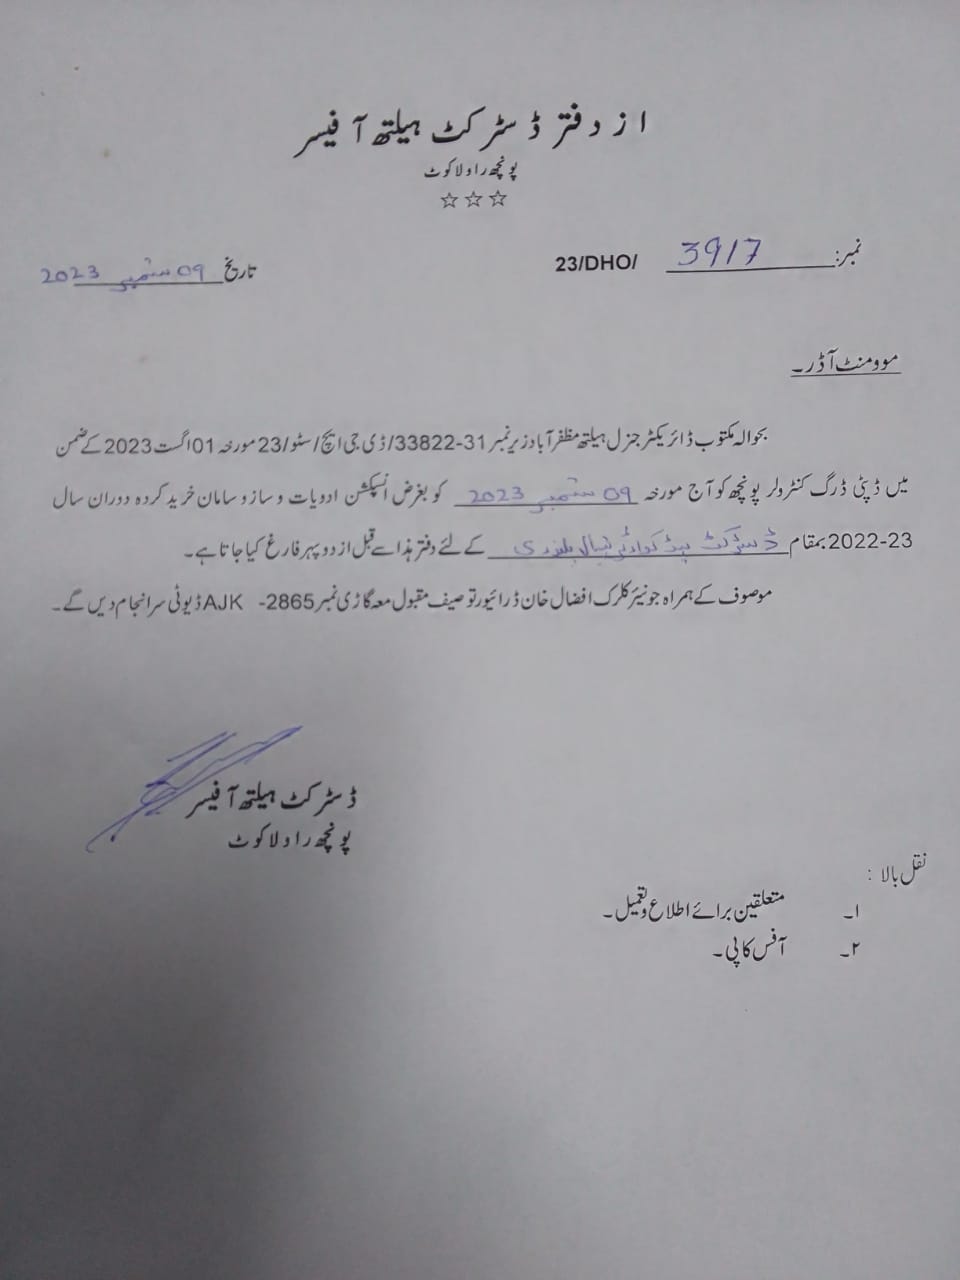 از دفتر ڈسٹرکٹ ہیلتھ آفیسر
پونچھ راولاکوٹ
☆☆☆
نمبر: 3917 /23/DHO
تاریخ 09 ستمبر 2023
موومنٹ آڈر۔
بحوالہ مکتوب ڈائریکٹر جنرل ہیلتھ مظفرآباد زیر نمبر 31-33822/ڈی جی ایچ/سٹو/23 مورخہ 01 اگست 2023 کے ضمن
میں ڈپٹی ڈرگ کنٹرولر پونچھ کو آج مورخہ 09 ستمبر 2023 کو بغرض انسپکشن ادویات و سازو سامان خرید کردہ دوران سال
2022-23 بمقام ڈسٹرکٹ ہیڈ کوارٹر ہسپتال پلندری کے لئے دفتر ہذا سے قبل از دوپہر فارغ کیا جاتا ہے۔
موصوف کے ہمراہ جونیئر کلرک افضال خان ڈرائیور توصیف مقبول معہ گاڑی نمبر 2865- AJK ڈیوٹی سرانجام دیں گے۔
ڈسٹرکٹ ہیلتھ آفیسر
پونچھ راولاکوٹ
نقل بالا :
۱۔ متعلقین برائے اطلاع و تعمیل۔
۲۔ آفس کاپی۔